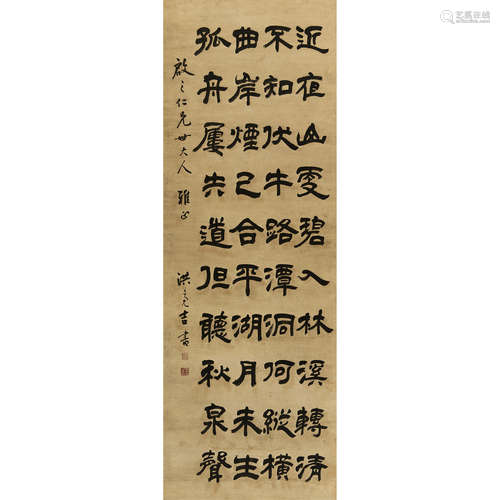 近夜山更碧入林溪轉清
不知伏牛路潭洞何縱橫
曲岸煙已合平湖月未生
孤舟屢失道但聽秋泉聲
啟之仁兄世大人 雅正 洪亮吉書